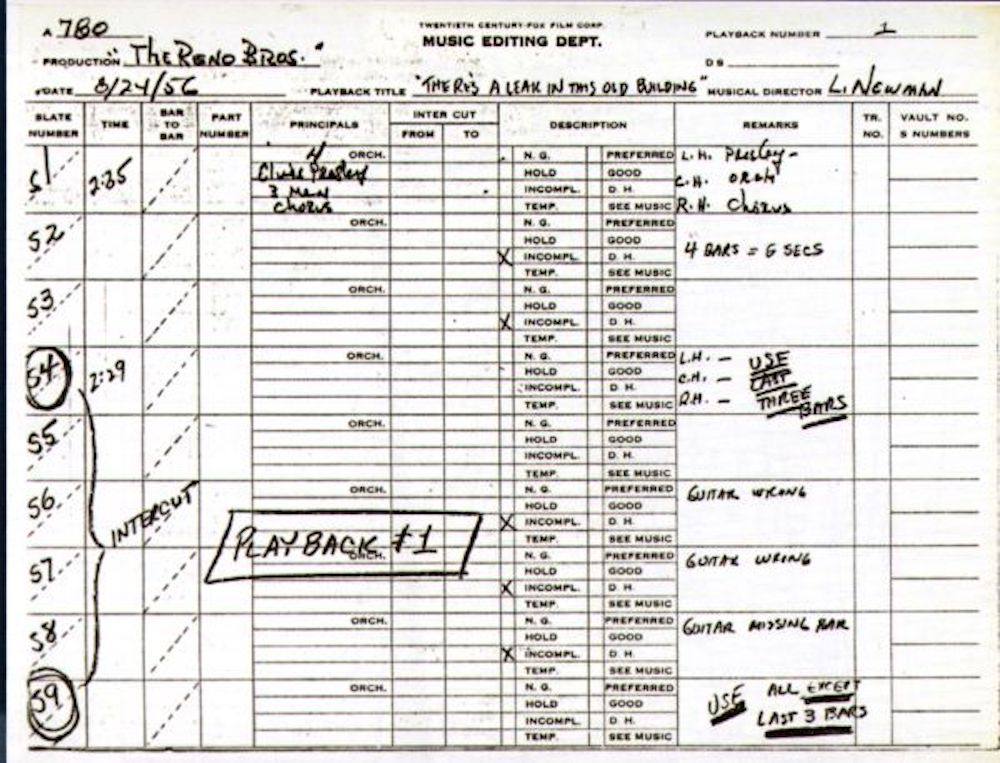 A 780
TWENTIETH CENTURY-FOX FILM CORP.
MUSIC EDITING DEPT.
PLAYBACK NUMBER 1
PRODUCTION "THE RENO BROS."
D S
DATE 8/24/56 PLAYBACK TITLE "THERE'S A LEAK IN THIS OLD BUILDING" MUSICAL DIRECTOR L. NEWMAN
SLATE NUMBER TIME BAR TO BAR PART NUMBER PRINCIPALS INTER CUT FROM TO DESCRIPTION REMARKS TR. NO. VAULT NO. S NUMBERS
S1 2:35 4 ORCH. N. G. PREFERRED L.H. Presley-
Presley HOLD GOOD C.H. ORCH
3 Men INCOMPL. D. H.
Chorus TEMP. SEE MUSIC R.H. Chorus
S2 ORCH. N. G. PREFERRED
HOLD GOOD 4 BARS = 6 SECS
X INCOMPL. D. H.
TEMP. SEE MUSIC
S3 ORCH. N. G. PREFERRED
HOLD GOOD
X INCOMPL. D. H.
TEMP. SEE MUSIC
S4 2:29 ORCH. N. G. PREFERRED L.H. - USE
HOLD GOOD C.H. - LAST
INCOMPL. D. H. THREE
TEMP. SEE MUSIC R.H. - BARS
S5 ORCH. N. G. PREFERRED
HOLD GOOD
INCOMPL. D. H.
TEMP. SEE MUSIC
S6 ORCH. N. G. PREFERRED GUITAR WRONG
HOLD GOOD
INTERCUT X INCOMPL. D. H.
PLAYBACK #1 TEMP. SEE MUSIC
S7 ORCH. N. G. PREFERRED GUITAR WRONG
HOLD GOOD
X INCOMPL. D. H.
TEMP. SEE MUSIC
S8 ORCH. N. G. PREFERRED GUITAR MISSING BAR
HOLD GOOD
X INCOMPL. D. H.
TEMP. SEE MUSIC
S9 ORCH. N. G. PREFERRED USE ALL EXCEPT
HOLD GOOD LAST 3 BARS
INCOMPL. D. H.
TEMP. SEE MUSIC